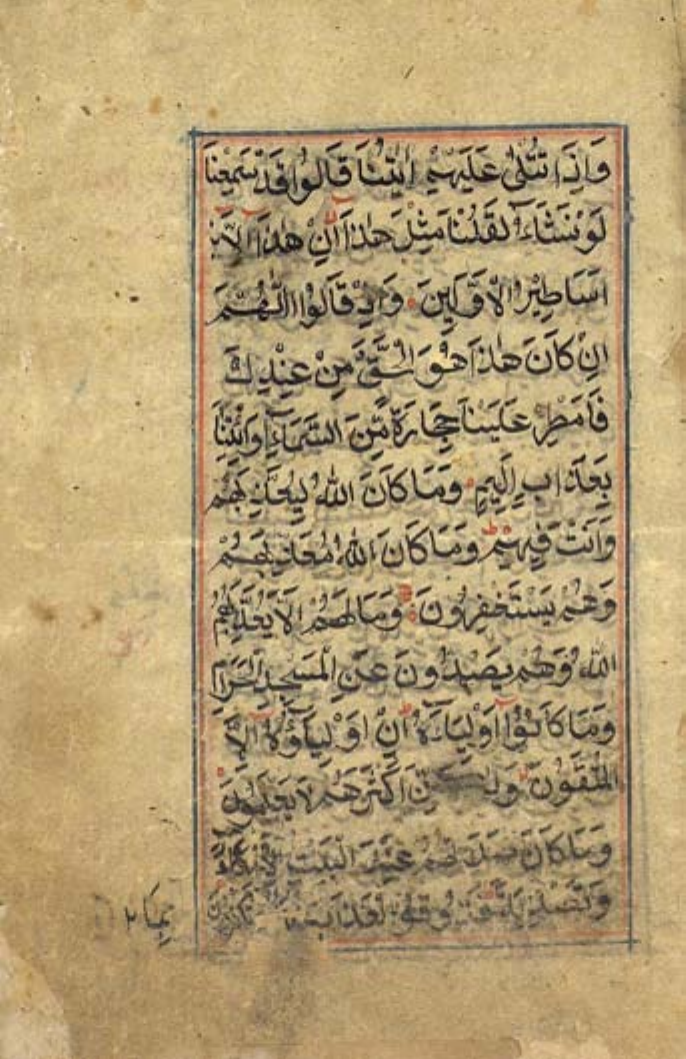 وَاِذَا تُتْلٰى عَلَيْهِمْ اٰيٰتُنَا قَالُوا قَدْ سَمِعْنَا
لَوْ نَشَآءُ لَقُلْنَا مِثْلَ هٰذَآ اِنْ هٰذَآ اِلَّآ
اَسَاطِيْرُ الْاَوَّلِيْنَ وَاِذْ قَالُوا اللّٰهُمَّ
اِنْ كَانَ هٰذَا هُوَ الْحَقَّ مِنْ عِنْدِكَ
فَاَمْطِرْ عَلَيْنَا حِجَارَةً مِّنَ السَّمَآءِ اَوِ ائْتِنَا
بِعَذَابٍ اَلِيْمٍ وَمَا كَانَ اللّٰهُ لِيُعَذِّبَهُمْ
وَاَنْتَ فِيْهِمْ وَمَا كَانَ اللّٰهُ مُعَذِّبَهُمْ
وَهُمْ يَسْتَغْفِرُوْنَ وَمَا لَهُمْ اَلَّا يُعَذِّبَهُمُ
اللّٰهُ وَهُمْ يَصُدُّوْنَ عَنِ الْمَسْجِدِ الْحَرَامِ
وَمَا كَانُوْٓا اَوْلِيَآءَهٗ اِنْ اَوْلِيَآؤُهٗٓ اِلَّا
الْمُتَّقُوْنَ وَلٰكِنَّ اَكْثَرَهُمْ لَا يَعْلَمُوْنَ
وَمَا كَانَ صَلَاتُهُمْ عِنْدَ الْبَيْتِ اِلَّا مُكَآءً
وَتَصْدِيَةً فَذُوْقُوا الْعَذَابَ بِمَا كُنْتُمْ
بِمَا